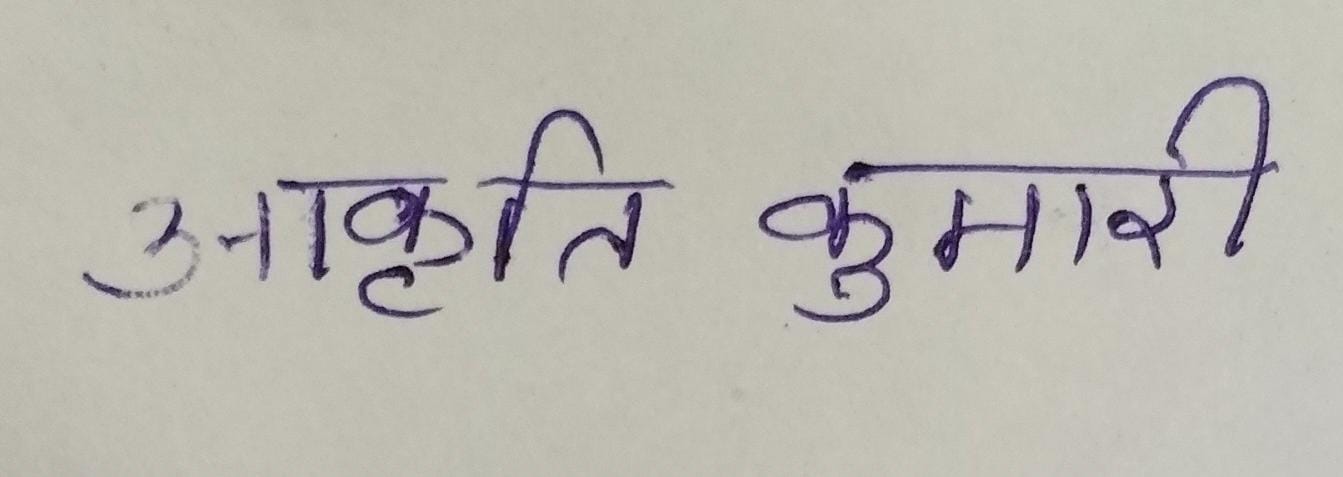 आकृति कुमारी